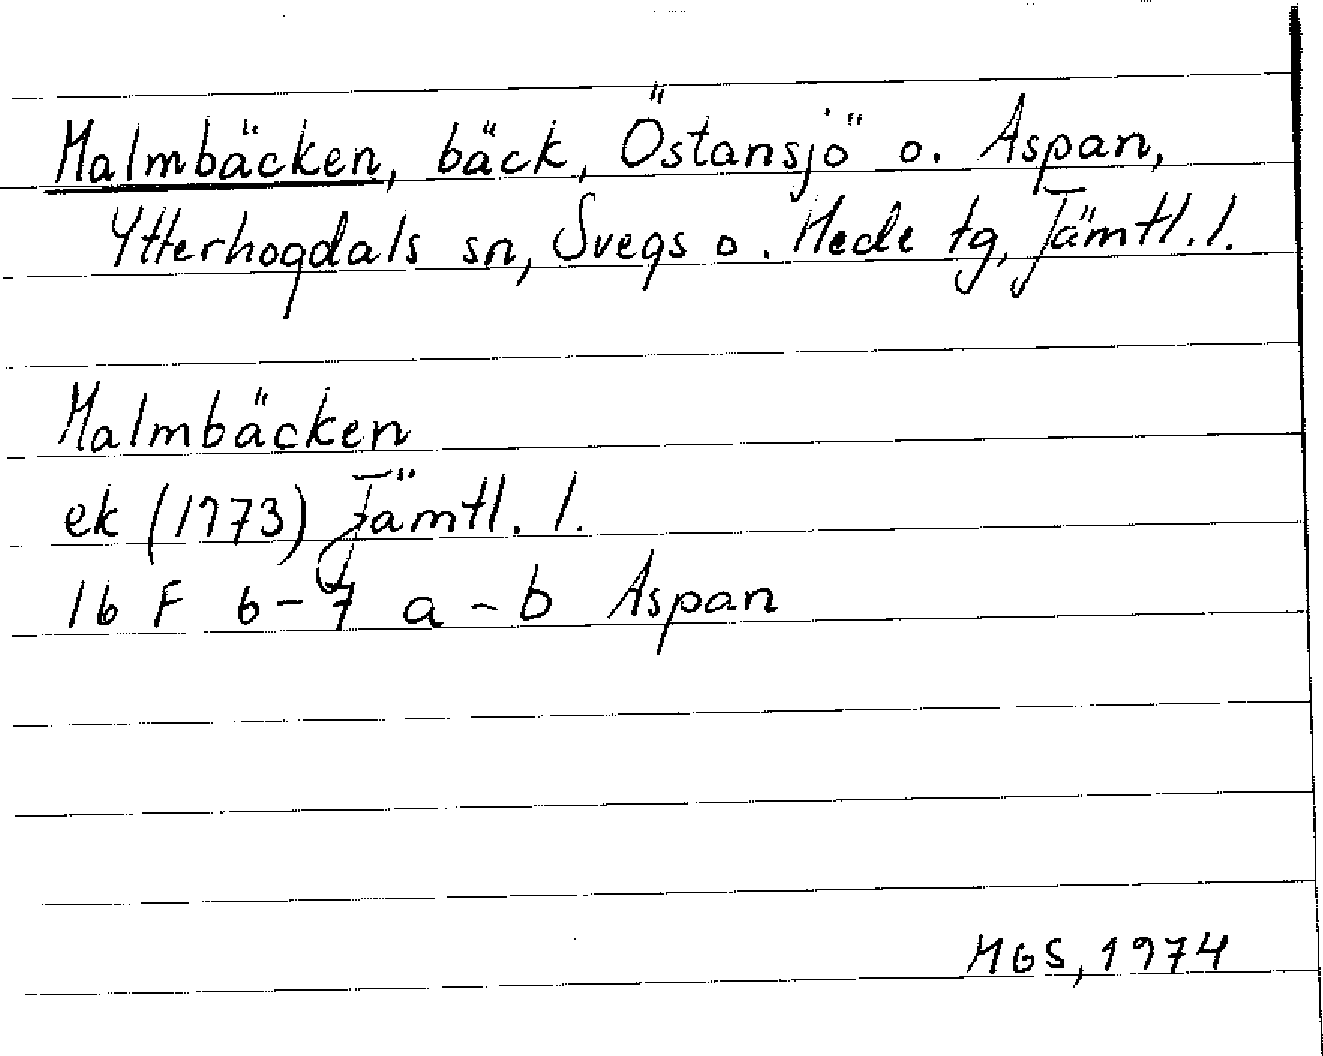 Malmbäcken, bäck, Östansjö o. Aspan,
Ytterhogdals sn, Svegs o. Hede tg, Jämtl. l.
Malmbäcken
ek (1973) Jämtl. l.
16 F 6-7 a-b Aspan
MGS, 1974